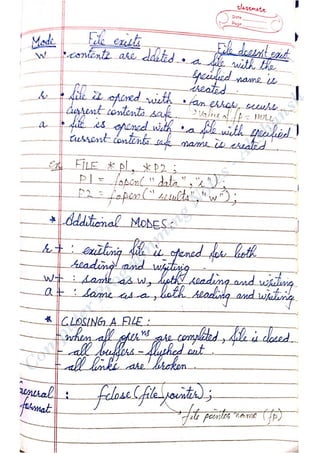 classmate
Date
Page
Mode File exists File doesn't exist
w • contents are deleted • a file with the
specified name is
created
r • file is opened with • an error occurs
current contents safe value of fp = NULL
a • file is opened with • a file with specified
current contents safe name is created
eg. FILE *p1, *p2;
p1 = fopen("data", "r");
p2 = fopen("results", "w");
* Additional MODES:
r+ : existing file is opened for both
reading and writing
w+ : same as w, both reading and writing
a+ : same as a, both reading and writing
* CLOSING A FILE:
- when all oper^ns are completed, file is closed.
- all buffers - flushed out.
- all links are broken.
General format : fclose(file pointer);
file pointer name (fp)